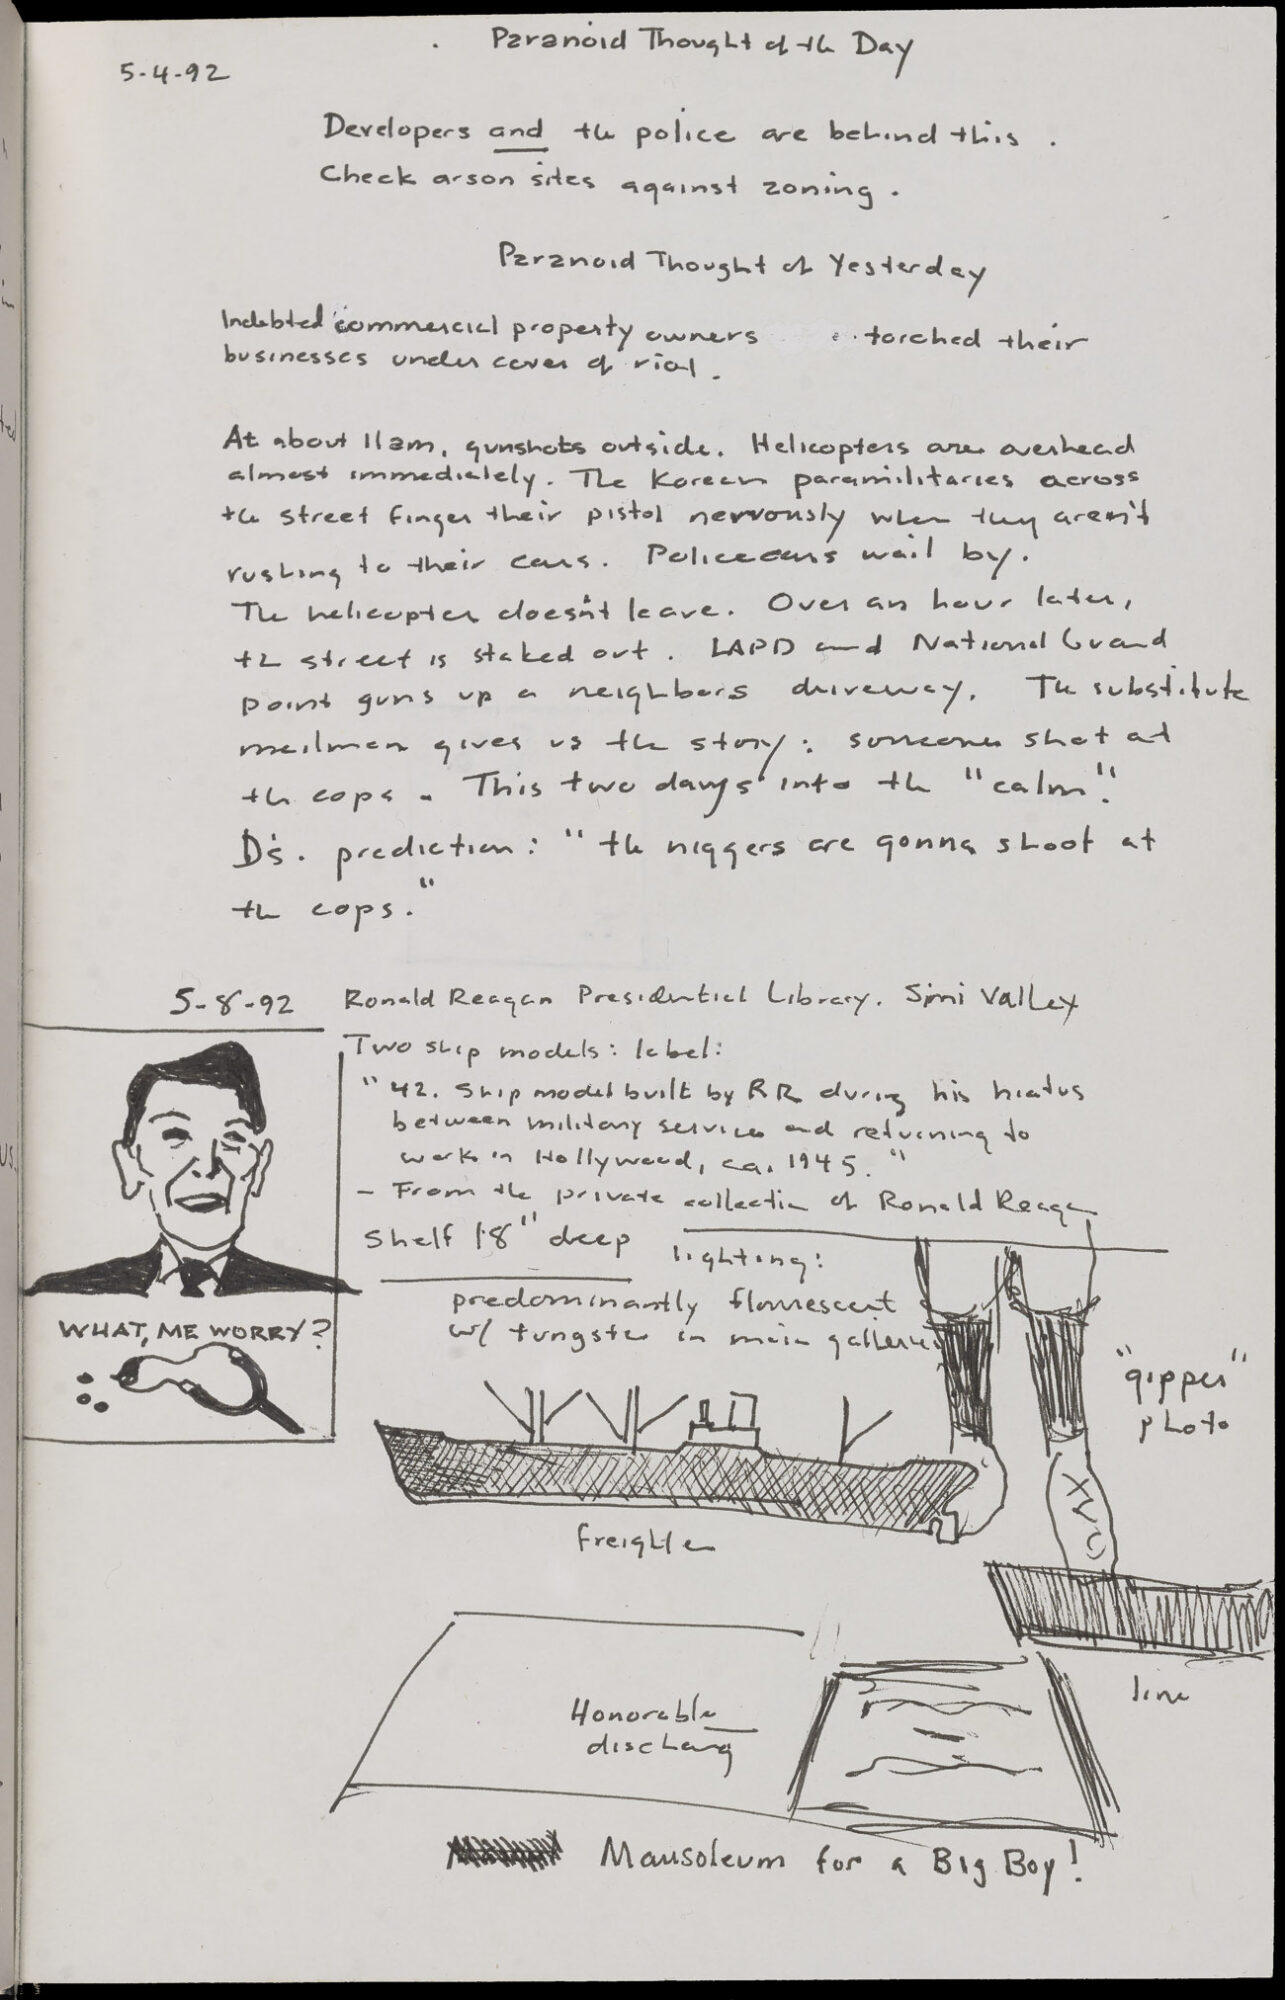 Paranoid Thought of the Day
5-4-92
Developers and the police are behind this.
Check arson sites against zoning.
Paranoid Thought of Yesterday
Indebted commercial property owners torched their
businesses under cover of riot.
At about 11am, gunshots outside. Helicopters are overhead
almost immediately. The Korean paramilitaries across
the street finger their pistol nervously when they aren't
rushing to their cars. Policecars wail by.
The helicopter doesn't leave. Over an hour later,
the street is staked out. LAPD and National Guard
point guns up a neighbors driveway. The substitute
mailman gives us the story: someone shot at
the cops. This two days into the "calm".
D's. prediction: "the niggers are gonna shoot at
the cops."
5-8-92 Ronald Reagan Presidential Library. Simi Valley
Two ship models: label:
"42. Ship model built by RR during his hiatus
between military service and returning to
work in Hollywood, ca. 1945."
- From the private collection of Ronald Reagan
Shelf 18" deep
lighting:
predominantly flourescent
w/ tungsten in main galleries
WHAT, ME WORRY?
"gipper"
photo
freighter
line
Honorable
discharg
Mausoleum for a Big Boy!